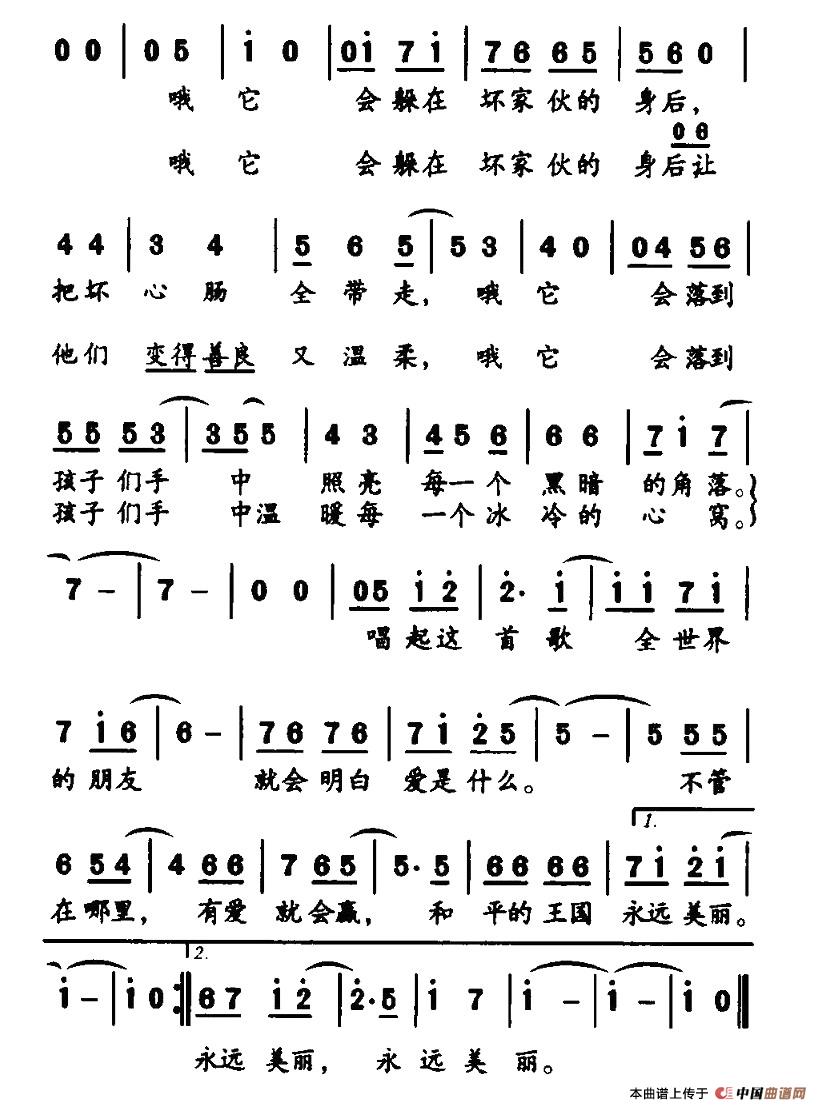 0 0 | 0 5 | i 0 | 0 i 7 i | 7 6 6 5 | 5 6 0 |
哦 它 会 躲在 坏家 伙的 身后,
0 6
哦 它 会 躲在 坏家 伙的 身后让
4 4 | 3 4 | 5 6 5 | 5 3 | 4 0 | 0 4 5 6 |
把坏 心 肠 全 带 走, 哦 它 会 落到
他们 变得 善良 又 温 柔, 哦 它 会 落到
5 5 5 3 | 3 5 5 | 4 3 | 4 5 6 | 6 6 | 7 i 7 |
孩子 们手 中 照 亮 每一个 黑暗 的角 落。
孩子 们手 中温 暖每 一个冰 冷的 心 窝。
7 – | 7 – | 0 0 | 0 5 i 2 | 2· i | i i 7 i |
唱 起这 首 歌 全 世界
7 i 6 | 6 – | 7 6 7 6 | 7 i 2 5 | 5 – | 5 5 5 |
的 朋友 就会 明白 爱是 什么。 不管
1.
6 5 4 | 4 6 6 | 7 6 5 | 5· 5 | 6 6 6 6 | 7 i 2 i |
在 哪里, 有爱 就 会赢, 和 平的 王国 永远 美丽。
2.
i – | i 0 :‖ 6 7 i 2 | 2· 5 | i 7 | i – | i – | i 0 ‖
永远 美丽, 永 远 美 丽。
本曲谱上传于 中国曲谱网